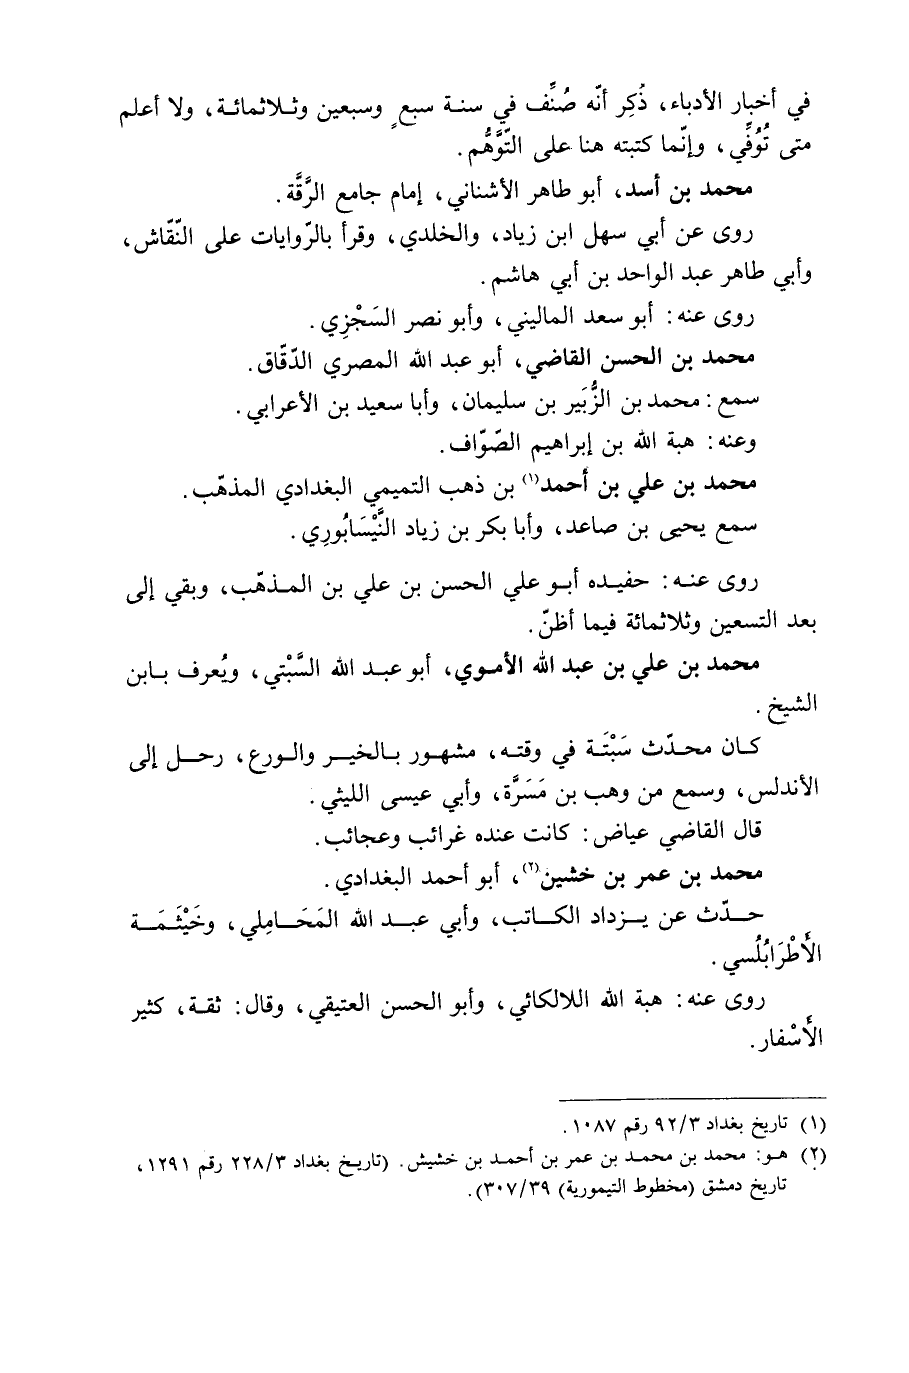 في أخبار الأدباء، ذُكِر أنّه صُنِّف في سنة سبعٍ وسبعين وثلاثمائة، ولا أعلم
متى تُوُفِّي، وإنّما كتبته هنا على التَّوَهُّم.
محمد بن أسد، أبو طاهر الأشناني، إمام جامع الرَّقَّة.
روى عن أبي سهل ابن زياد، والخلدي، وقرأ بالرّوايات على النّقّاش،
وأبي طاهر عبد الواحد بن أبي هاشم.
روى عنه: أبو سعد الماليني، وأبو نصر السَجْزِي.
محمد بن الحسن القاضي، أبو عبد الله المصري الدّقّاق.
سمع: محمد بن الزُّبَير بن سليمان، وأبا سعيد بن الأعرابي.
وعنه: هبة الله بن إبراهيم الصّوّاف.
محمد بن علي بن أحمد(١) بن ذهب التميمي البغدادي المذهّب.
سمع يحيى بن صاعد، وأبا بكر بن زياد النَّيْسَابُورِي.
روى عنه: حفيده أبو علي الحسن بن علي بن المذهّب، وبقي إلى
بعد التسعين وثلاثمائة فيما أظنّ.
محمد بن علي بن عبد الله الأموي، أبو عبد الله السَّبْتي، ويُعرف بابن
الشيخ.
كان محدّث سَبْتَة في وقته، مشهور بالخير والورع، رحل إلى
الأندلس، وسمع من وهب بن مَسَرَّة، وأبي عيسى الليثي.
قال القاضي عياض: كانت عنده غرائب وعجائب.
محمد بن عمر بن خشين(٢)، أبو أحمد البغدادي.
حدّث عن يزداد الكاتب، وأبي عبد الله المَحَامِلي، وخَيْثَمَة
الأَطْرَابُلُسي.
روى عنه: هبة الله اللالكائي، وأبو الحسن العتيقي، وقال: ثقة، كثير
الأَسْفار.
(١) تاريخ بغداد ٩٢/٣ رقم ١٠٨٧.
(٢) هو: محمد بن محمد بن عمر بن أحمد بن خشيش. (تاريخ بغداد ٢٢٨/٣ رقم ١٢٩١،
تاريخ دمشق (مخطوط التيمورية) ٣٠٧/٣٩).